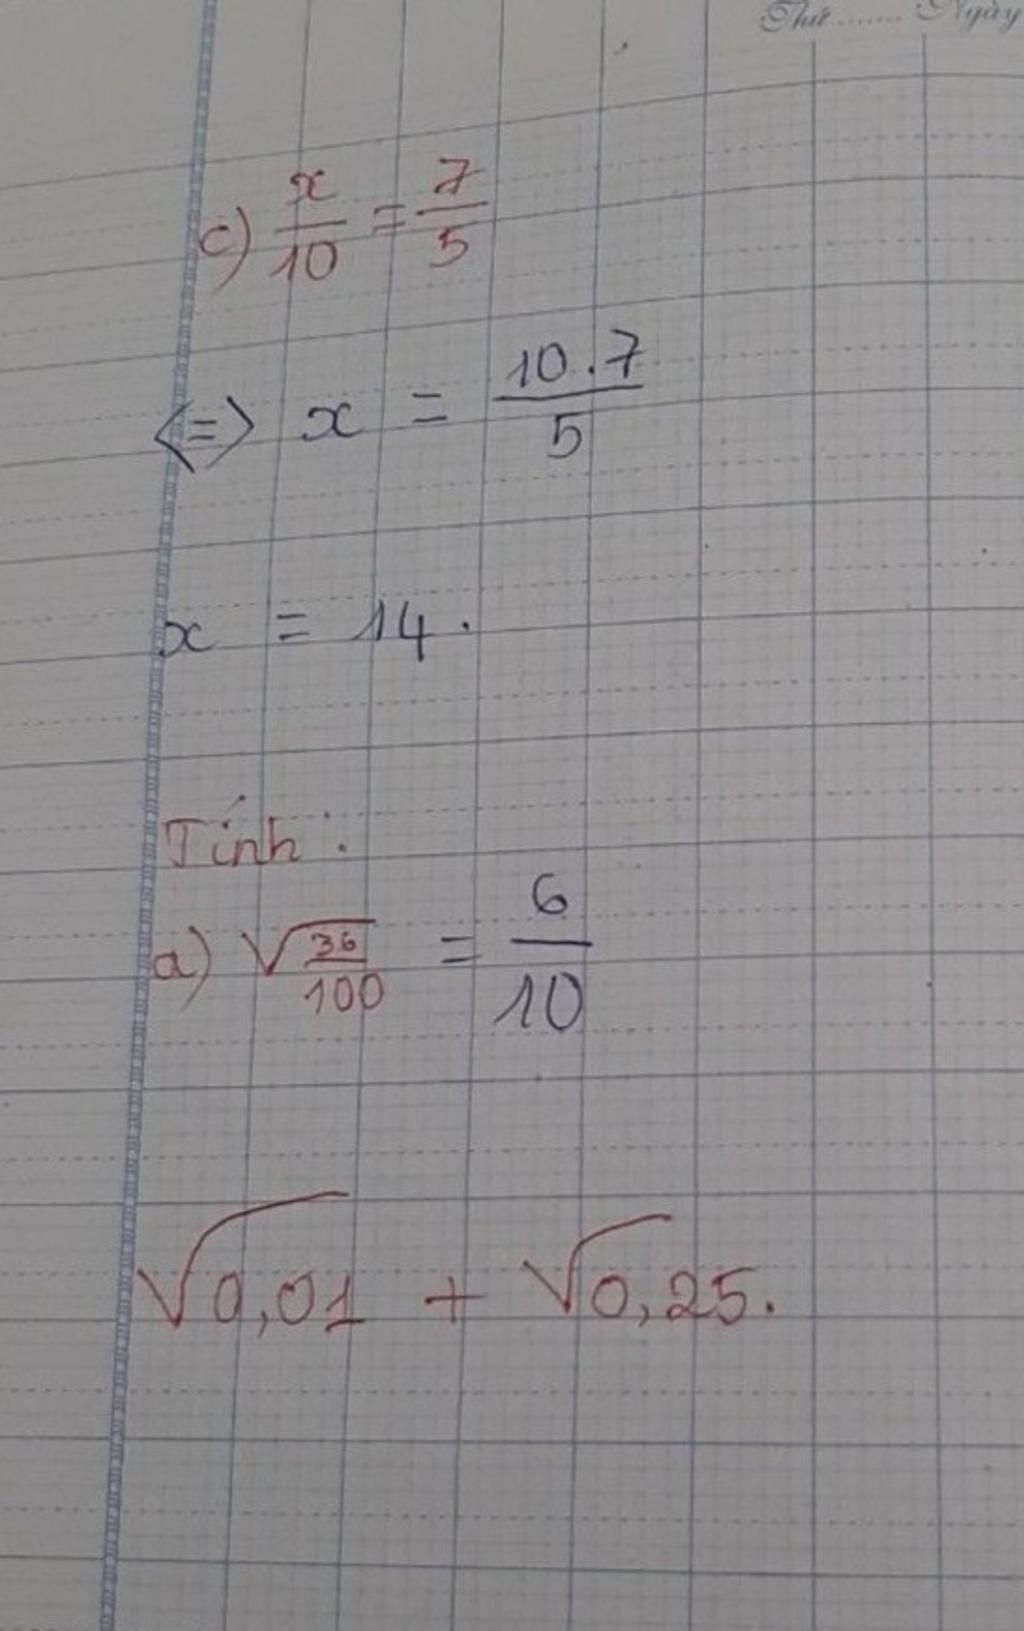 Thứ ........ Ngày
c) x/10 = 7/5
<=> x = 10.7/5
x = 14.
Tính:
a) √(36/100) = 6/10
√0,01 + √0,25.